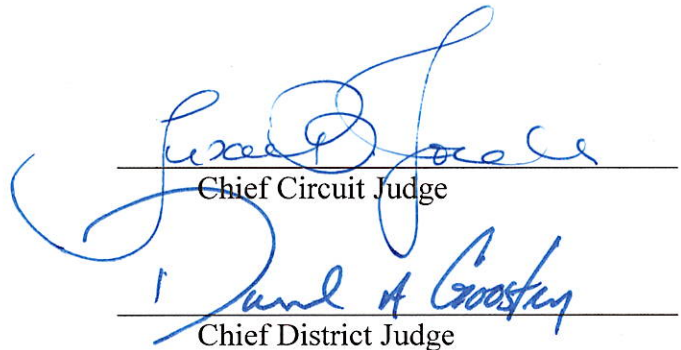 Susan B
Chief Circuit Judge
David A Goostrey
Chief District Judge